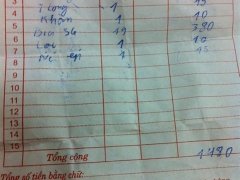 3 1 15
4 Khăn 1 10
5 Bia SG 19 380
6 Lạc 1 10
7 1 15
8
9
10
11
12
13
14
15
Tổng cộng 1480
Tổng số tiền bằng chữ: